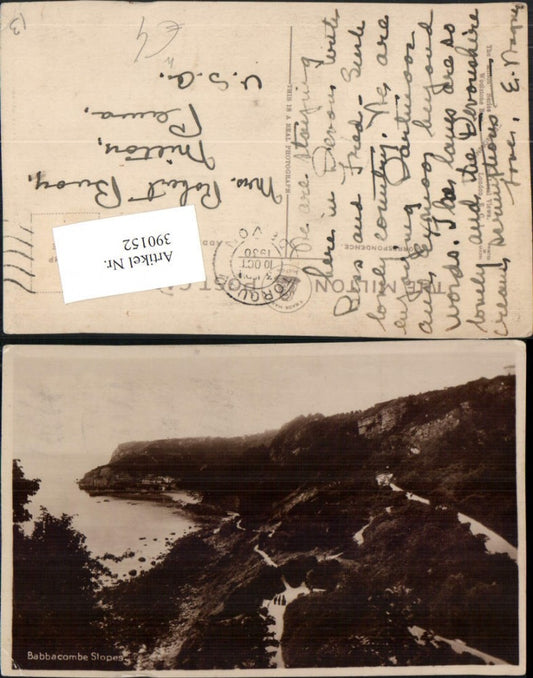 13
We are staying
here in Devon with
Bess and Fried - Such
lovely country. We are
enjoying Dartmoor
and Exmoor beyond
words. The lanes are so
lovely and the Devonshire
creams scrumptious
Love, E. Wagner
THIS IS A REAL PHOTOGRAPH
CORRESPONDENCE
THE MILTON
POST C
TORQU
10 OCT
1930
TRADE MARK
Mrs. Robert Bucon,
Milton,
Penna,
U. S. A.
Artikel Nr.
390152
Babbacombe Slopes